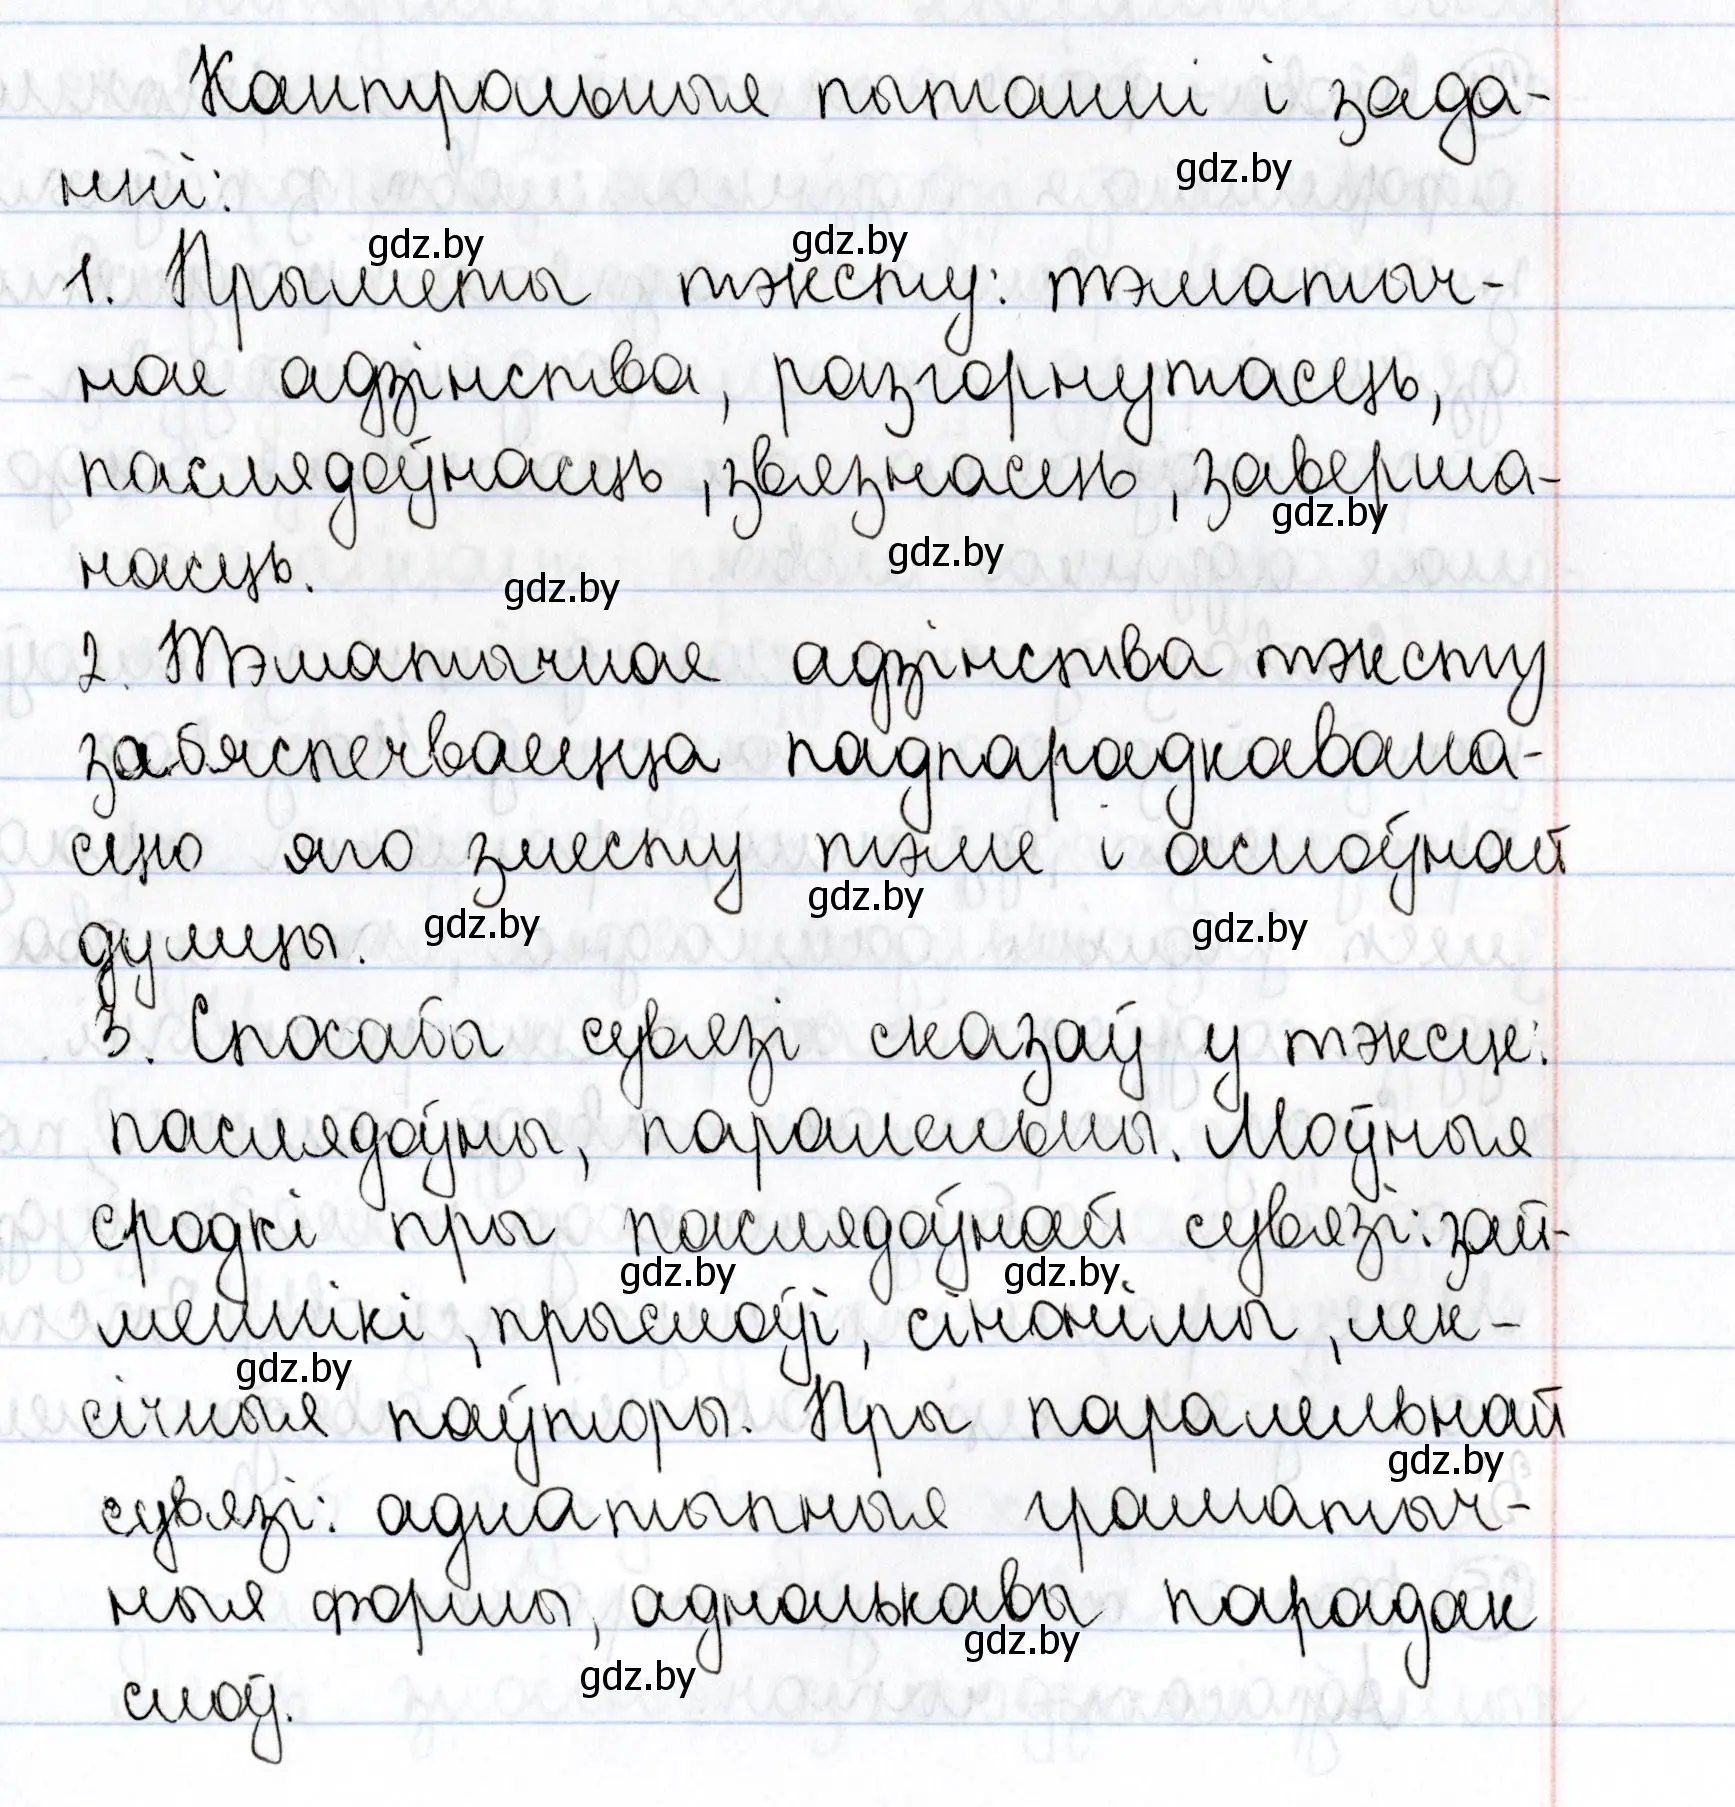 Кантрольныя пытанні і зада-
gdz.by
нні:
gdz.by gdz.by
1. Прыметы тэксту: тэматыч-
нае адзінства, разгорнутасць,
паслядоўнасць, звязнасць, заверша-
gdz.by
насць.
gdz.by gdz.by
2. Тэматычнае адзінства тэксту
забяспечваецца падпарадкавана-
сцю яго зместу тэме і асноўнай
gdz.by gdz.by gdz.by
думцы.
3. Спосабы сувязі сказаў у тэксце:
паслядоўны, паралельны. Моўныя
сродкі пры паслядоўнай сувязі: зай-
gdz.by gdz.by
меннікі, прыслоўі, сінонімы, лек-
gdz.by
січныя паўторы. Пры паралельнай
gdz.by
сувязі: аднатыпныя граматыч-
ныя формы, аднолькавы парадак
gdz.by gdz.by
слоў.